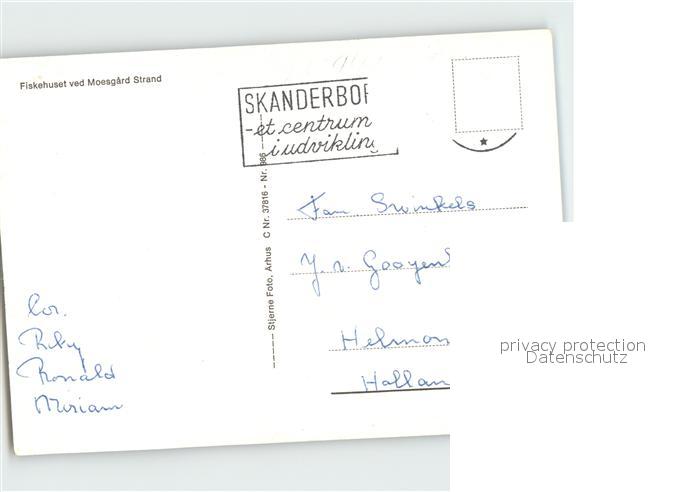 Fiskehuset ved Moesgård Strand
SKANDERBOR
-et centrum
i udvikling
Stjerne Foto, Århus C Nr. 37816 - Nr. 986
Fam. Swinkels
J. v. Gooyen
Helmon
Hollan
Cor.
Riky
Ronald
Miriam
privacy protection
Datenschutz